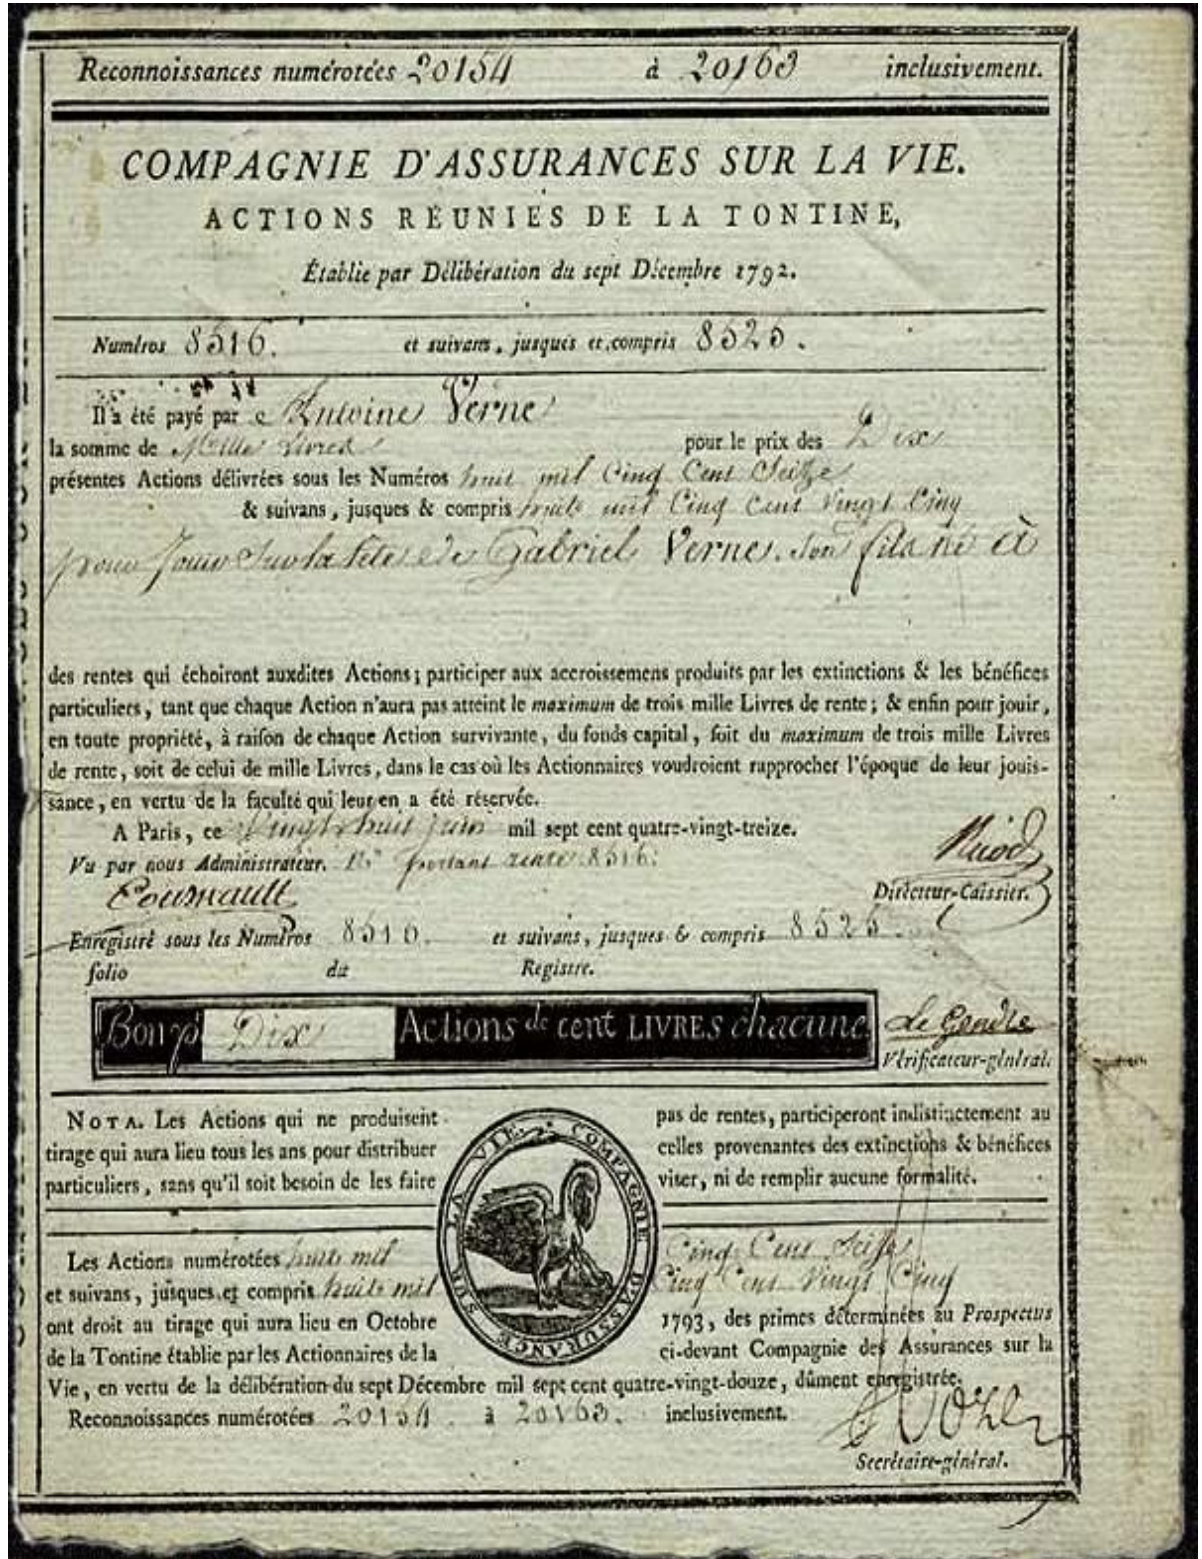 Reconnoissances numérotées 20154 à 20163 inclusivement.
COMPAGNIE D'ASSURANCES SUR LA VIE.
ACTIONS RÉUNIES DE LA TONTINE,
Établie par Délibération du sept Décembre 1792.
Numéros 8516. et suivans, jusques et compris 8525.
Il a été payé par Antoine Verne
la somme de Mille Livres pour le prix des Dix
présentes Actions délivrées sous les Numéros huit mil Cinq Cent Seize
& suivans, jusques & compris huit mil Cinq Cent Vingt Cinq
pour Jouir Sur la tête de Gabriel Verne. Son fils né à
des rentes qui échoiront auxdites Actions; participer aux accroissemens produits par les extinctions & les bénéfices
particuliers, tant que chaque Action n'aura pas atteint le maximum de trois mille Livres de rente; & enfin pour jouir,
en toute propriété, à raison de chaque Action survivante, du fonds capital, soit du maximum de trois mille Livres
de rente, soit de celui de mille Livres, dans le cas où les Actionnaires voudroient rapprocher l'époque de leur jouis-
sance, en vertu de la faculté qui leur en a été réservée.
A Paris, ce Vingt huit juin mil sept cent quatre-vingt-treize.
Vu par nous Administrateur. No portant rente 8516.
Directeur-Caissier.
Enregistré sous les Numéros 8516. et suivans, jusques & compris 8525.
folio du Registre.
Bon pr Dix Actions de cent LIVRES chacune
Le Gendre
Vérificateur-général.
NOTA. Les Actions qui ne produisent pas de rentes, participeront indistinctement au
tirage qui aura lieu tous les ans pour distribuer celles provenantes des extinctions & bénéfices
particuliers, sans qu'il soit besoin de les faire viser, ni de remplir aucune formalité.
COMPAGNIE D'ASSURANCE SUR LA VIE
Les Actions numérotées huit mil Cinq Cent Seize
et suivans, jusques et compris huit mil Cinq Cent Vingt Cinq
ont droit au tirage qui aura lieu en Octobre 1793, des primes déterminées au Prospectus
de la Tontine établie par les Actionnaires de la ci-devant Compagnie des Assurances sur la
Vie, en vertu de la délibération du sept Décembre mil sept cent quatre-vingt-douze, dûment enregistrée.
Reconnoissances numérotées 20154. à 20163. inclusivement.
Secrétaire-général.